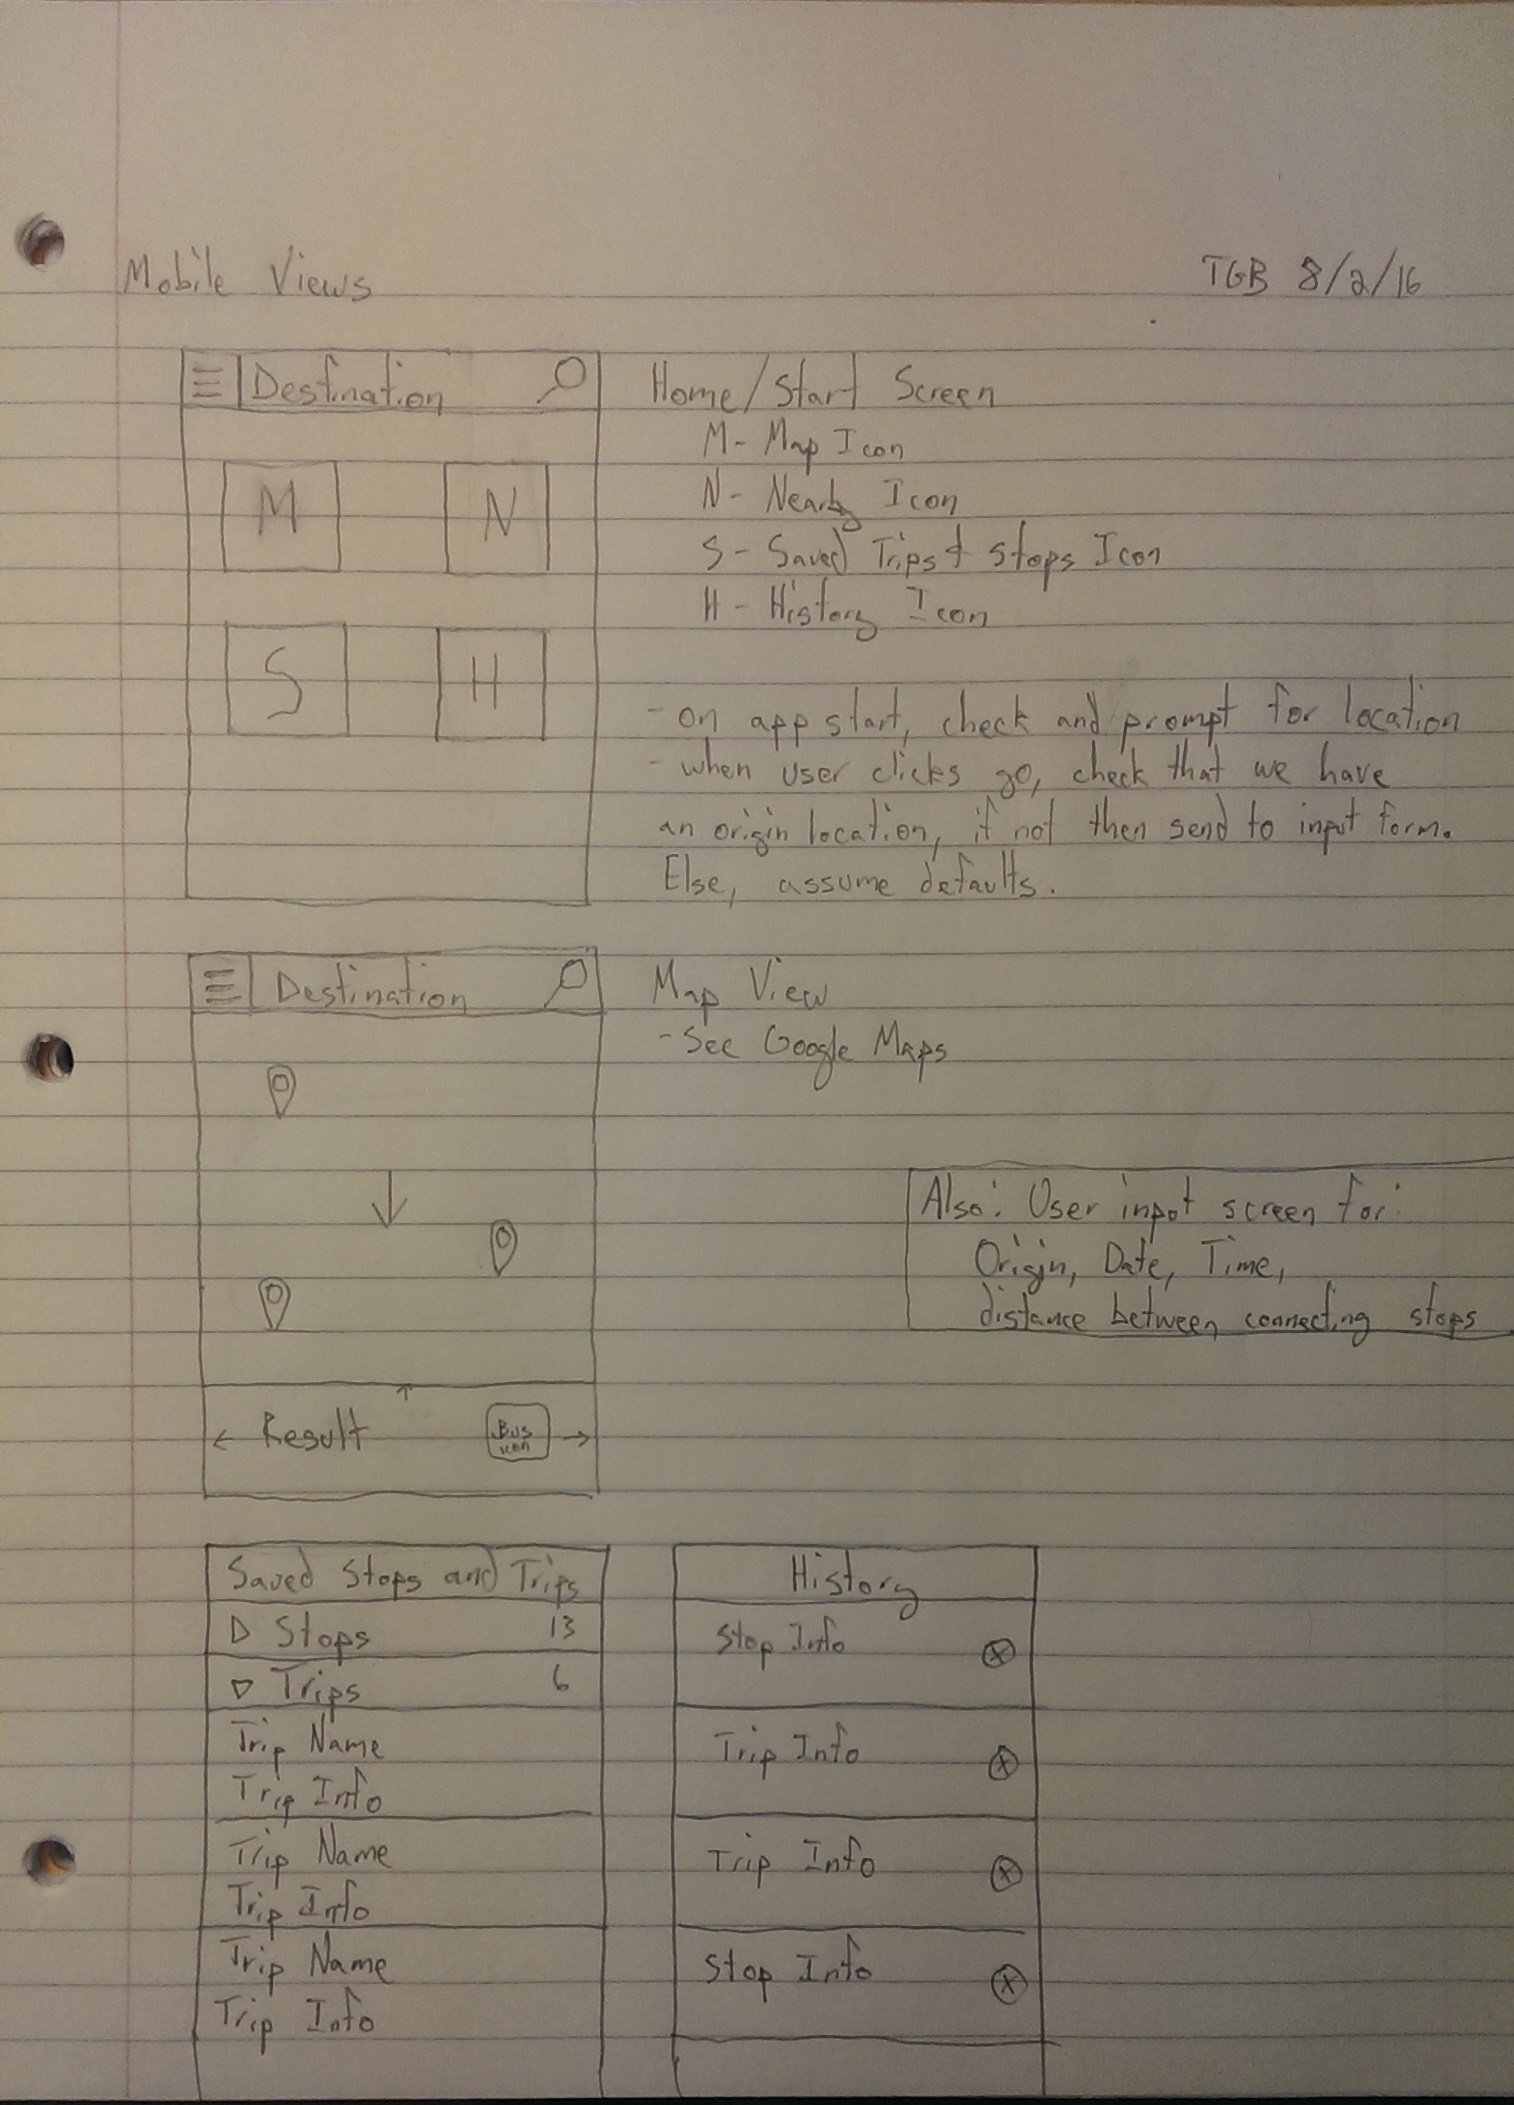 Mobile Views
TGB 8/2/16
Destination
M
N
S
H
Home/Start Screen
M- Map Icon
N- Nearby Icon
S- Saved Trips & Stops Icon
H- History Icon
- on app start, check and prompt for location
- when user clicks go, check that we have
an origin location, if not then send to input form.
Else, assume defaults.
Destination
Map View
- See Google Maps
Also: User input screen for:
Origin, Date, Time,
distance between connecting stops
Result
Bus
icon
Saved Stops and Trips
Stops 13
Trips 6
Trip Name
Trip Info
Trip Name
Trip Info
Trip Name
Trip Info
History
Stop Info
Trip Info
Trip Info
Stop Info